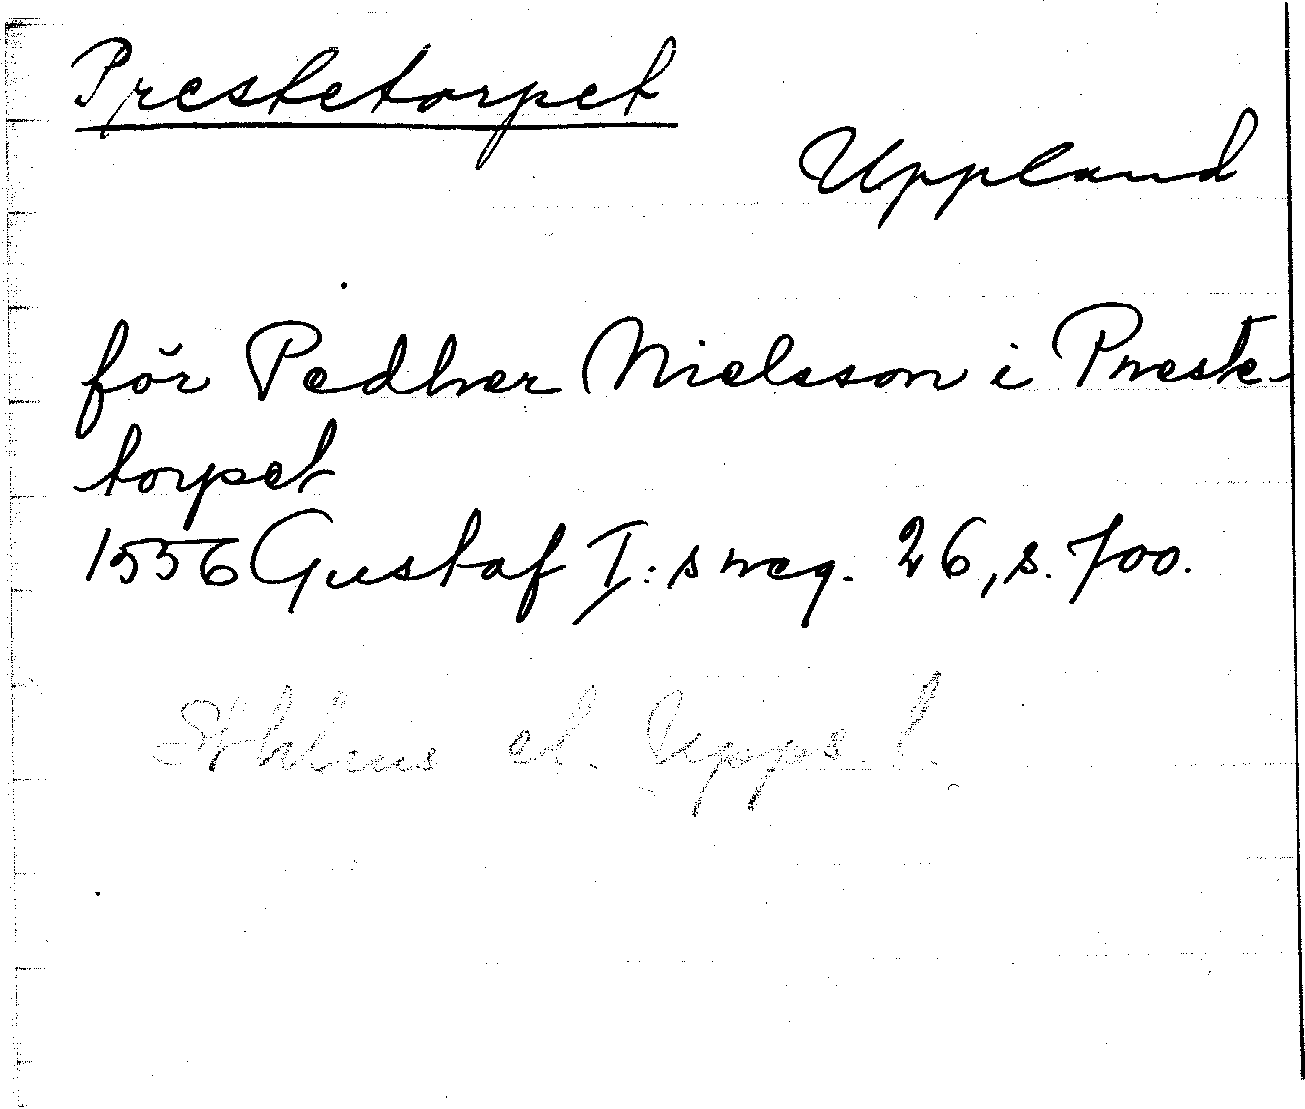 Prestetorpet
Uppland
för Pedher Nielsson i Preste-
torpet
1556 Gustaf I:s reg. 26, s. 700.
Sthlms el. Upps. l.